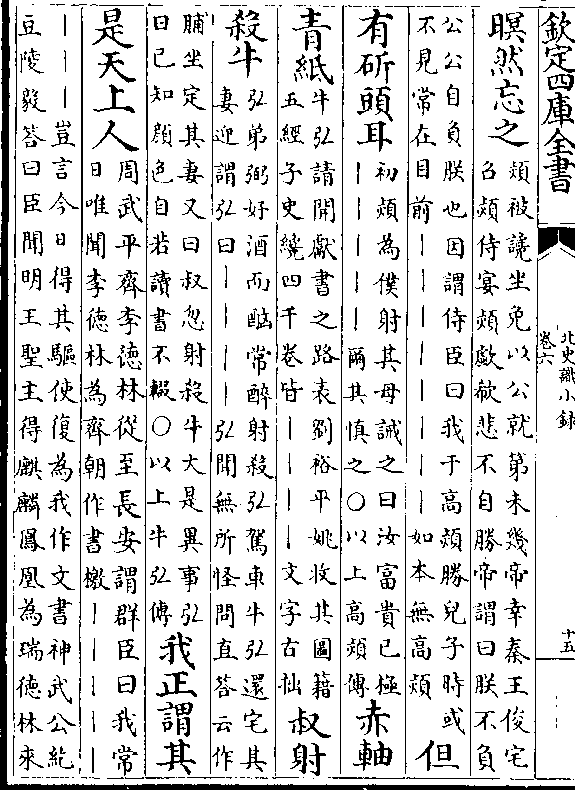 欽定四庫全書
北史識小錄
卷六
十五
瞑然忘之
熲被譴坐免以公就第未幾帝幸秦王俊宅
召熲侍宴熲歔欷悲不自勝帝謂曰朕不負
公公自負朕也因謂侍臣曰我于高熲勝兒子時或
不見常在目前｜｜｜｜｜｜如本無高熲
但
有斫頭耳
初熲為僕射其母誡之曰汝富貴已極
｜｜｜｜｜爾其慎之○以上高熲傳
赤軸
青紙
牛弘請開獻書之路表劉裕平姚收其圖籍
五經子史纔四千卷皆｜｜｜｜文字古拙
叔射
殺牛
弘弟弼好酒而酗常醉射殺弘駕車牛弘還宅其
妻迎謂弘曰｜｜｜｜弘聞無所怪問直答云作
脯坐定其妻又曰叔忽射殺牛大是異事弘
曰已知顏色自若讀書不輟○以上牛弘傳
我正謂其
是天上人
周武平齊李德林從至長安謂群臣曰我常
日唯聞李德林為齊朝作書檄｜｜｜｜｜
｜｜｜豈言今日得其驅使復為我作文書神武公紇
豆陵毅答曰臣聞明王聖主得麒麟鳳凰為瑞德林來